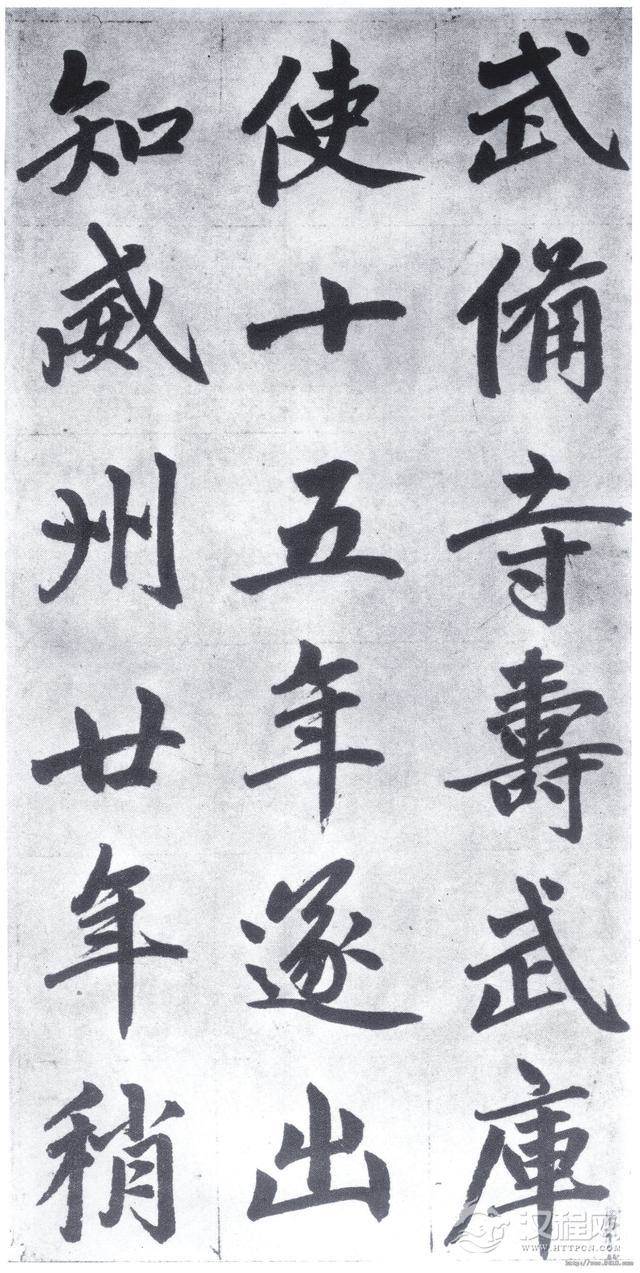 武備寺壽武庫
使十五年遂出
知威州廿年稍
汉程网
WWW.HTTPCN.COM